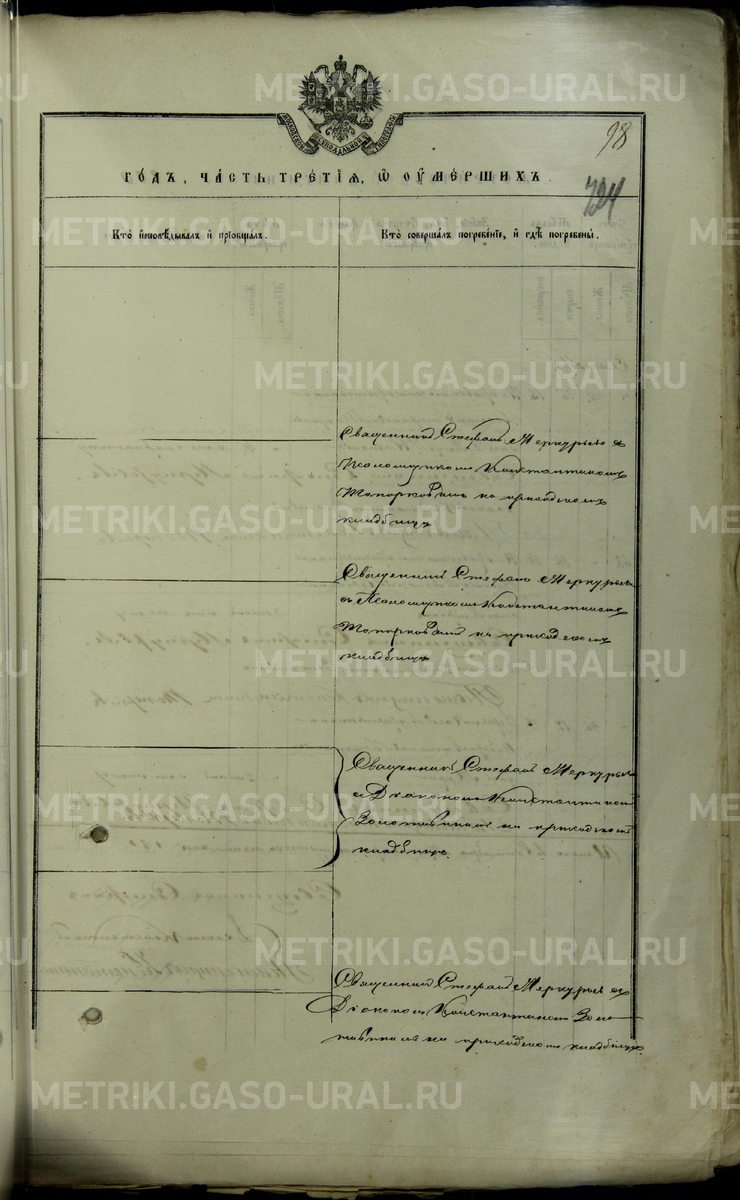 98
724
ГО́ДЪ, ЧА́СТЬ ТРЕ́ТІѦ, Ѿ ОУ҆МЕ́РШИХЪ.
Кто̀ и҆сповѣ́дывалъ и҆ прїѡбща́лъ.
Кто̀ соверша́лъ погребе́нїе, и҆ гдѣ̀ погребены̀.
Священникъ Стефанъ Меркурьевъ съ
Псаломщикомъ Константиномъ
Топорковымъ на приходскомъ
кладбищѣ
Священникъ Стефанъ Меркурьевъ
съ Псаломщикомъ Константиномъ
Топорковымъ на приходскомъ
кладбищѣ
Священникъ Стефанъ Меркурьевъ
съ Діакономъ Константиномъ
на приходскомъ
кладбищѣ.
Священникъ Стефанъ Меркурьевъ съ
Діакономъ Константиномъ
на приходскомъ кладбищѣ.
METRIKI.GASO-URAL.RU